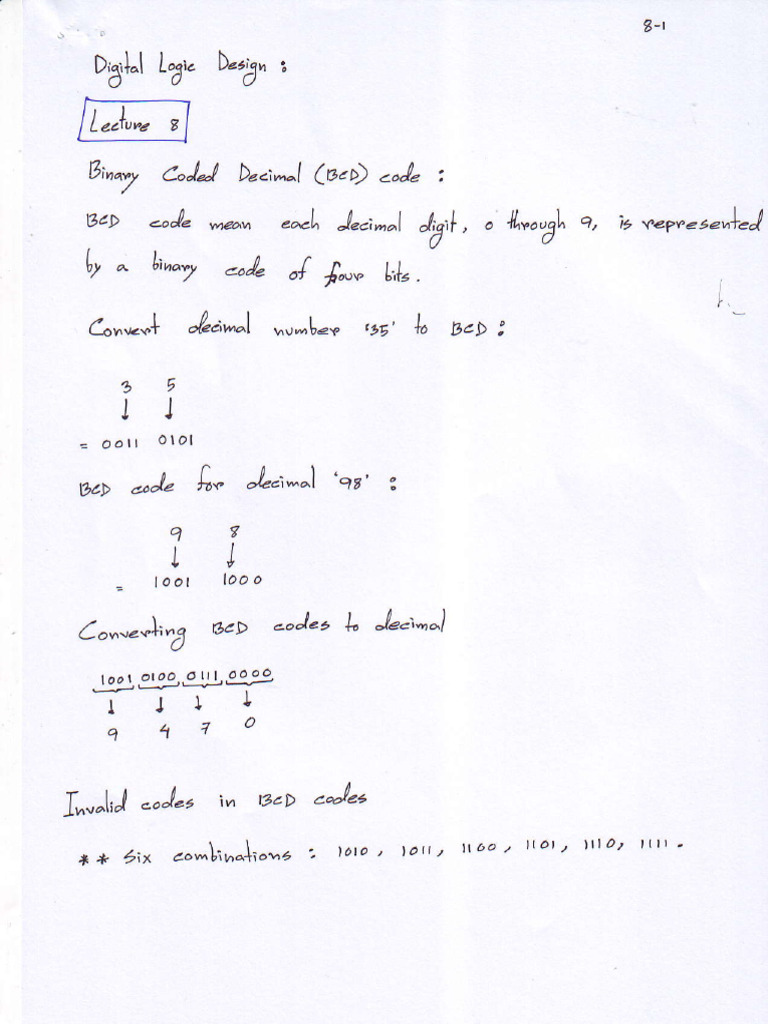 8-1
Digital Logic Design :
Lecture 8
Binary Coded Decimal (BCD) code :
BCD code mean each decimal digit, 0 through 9, is represented
by a binary code of four bits.
Convert decimal number '35' to BCD :
3 5
↓ ↓
= 0011 0101
BCD code for decimal '98' :
9 8
↓ ↓
= 1001 1000
Converting BCD codes to decimal
1001 0100 0111 0000
↓ ↓ ↓ ↓
9 4 7 0
Invalid codes in BCD codes
** Six combinations : 1010, 1011, 1100, 1101, 1110, 1111.